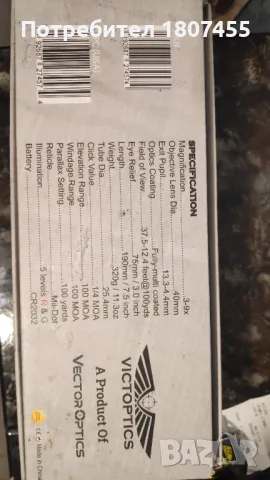 Потребител 1807455
SPECIFICATION
Magnification 3-9x
Objective Lens Dia. 40mm
Exit Pupil 13.3-4.4mm
Optics Coating Fully-multi coated
Field of View 37.5-12.4 feet@100yds
Eye Relief 75mm / 3.0 inch
Length 190mm / 7.5 inch
Weight 320g / 11.3oz
Tube Dia. 25.4mm
Click Value 1/4 MOA
Elevation Range 100 MOA
Windage Range 100 MOA
Parallax Setting 100 yards
Reticle Mil-Dot
Illumination 5 levels R & G
Battery CR2032
VICTOPTICS
A Product Of
VECTOR OPTICS
Made in China
BAZAR